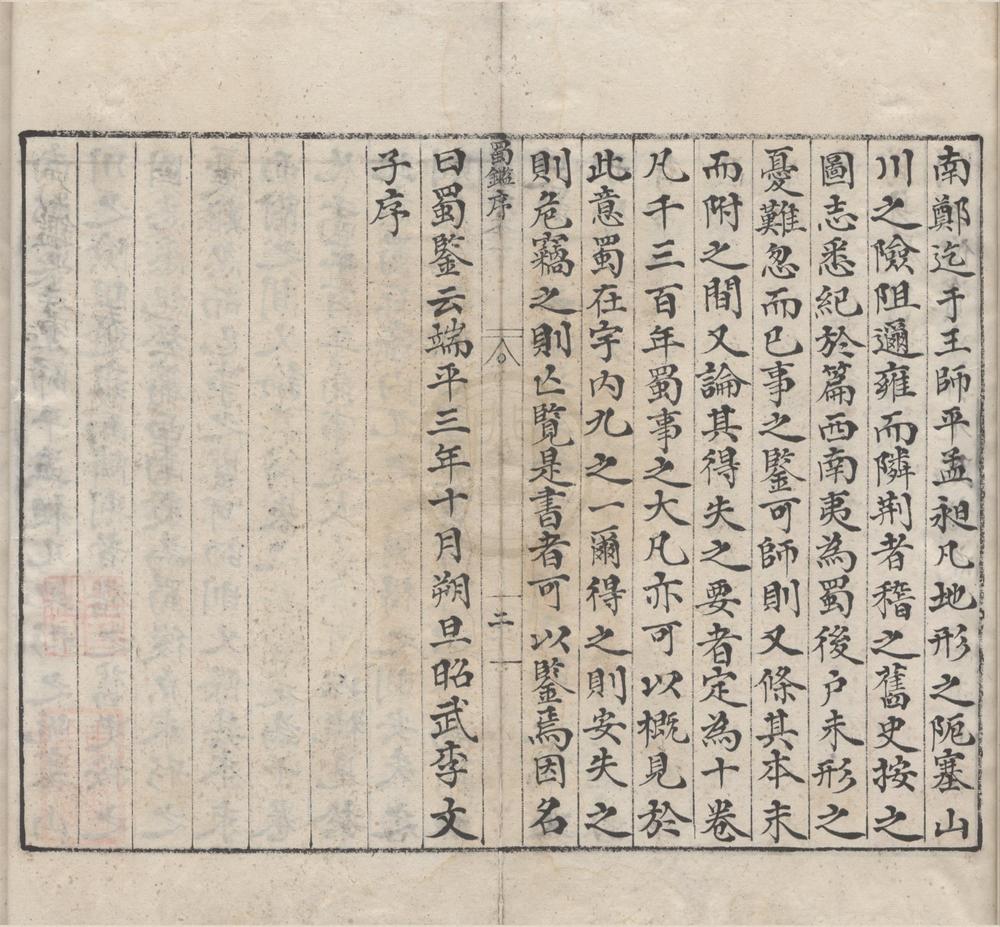 南鄭迄于王師平孟昶凡地形之阨塞山
川之險阻邇雍而隣荆者稽之舊史按之
圖志悉紀於篇西南夷為蜀後户未形之
憂難忽而已事之鑒可師則又條其本末
而附之間又論其得失之要者定為十卷
凡千三百年蜀事之大凡亦可以概見於
此意蜀在宇内九之一爾得之則安失之
則危竊之則亡覽是書者可以鑒焉因名
蜀鑑序
二
曰蜀鑒云端平三年十月朔旦昭武李文
子序